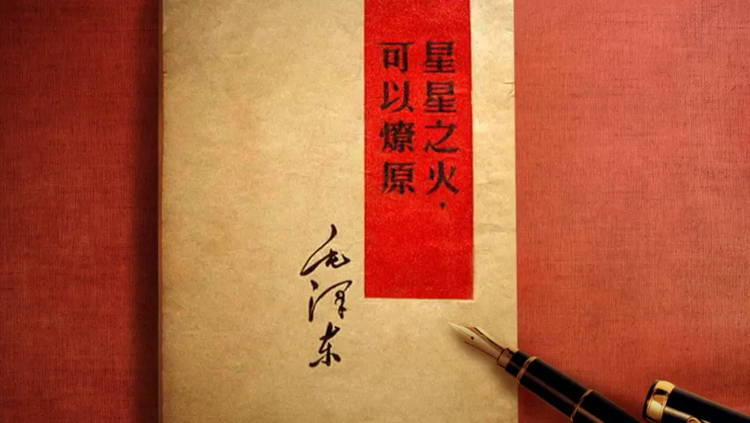 星星之火，
可以燎原
毛泽东